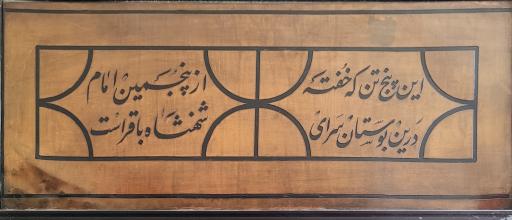 این پنج تن که خفته
درین بوستان سرای
از پنجمین امام
شهنشاه باقر است